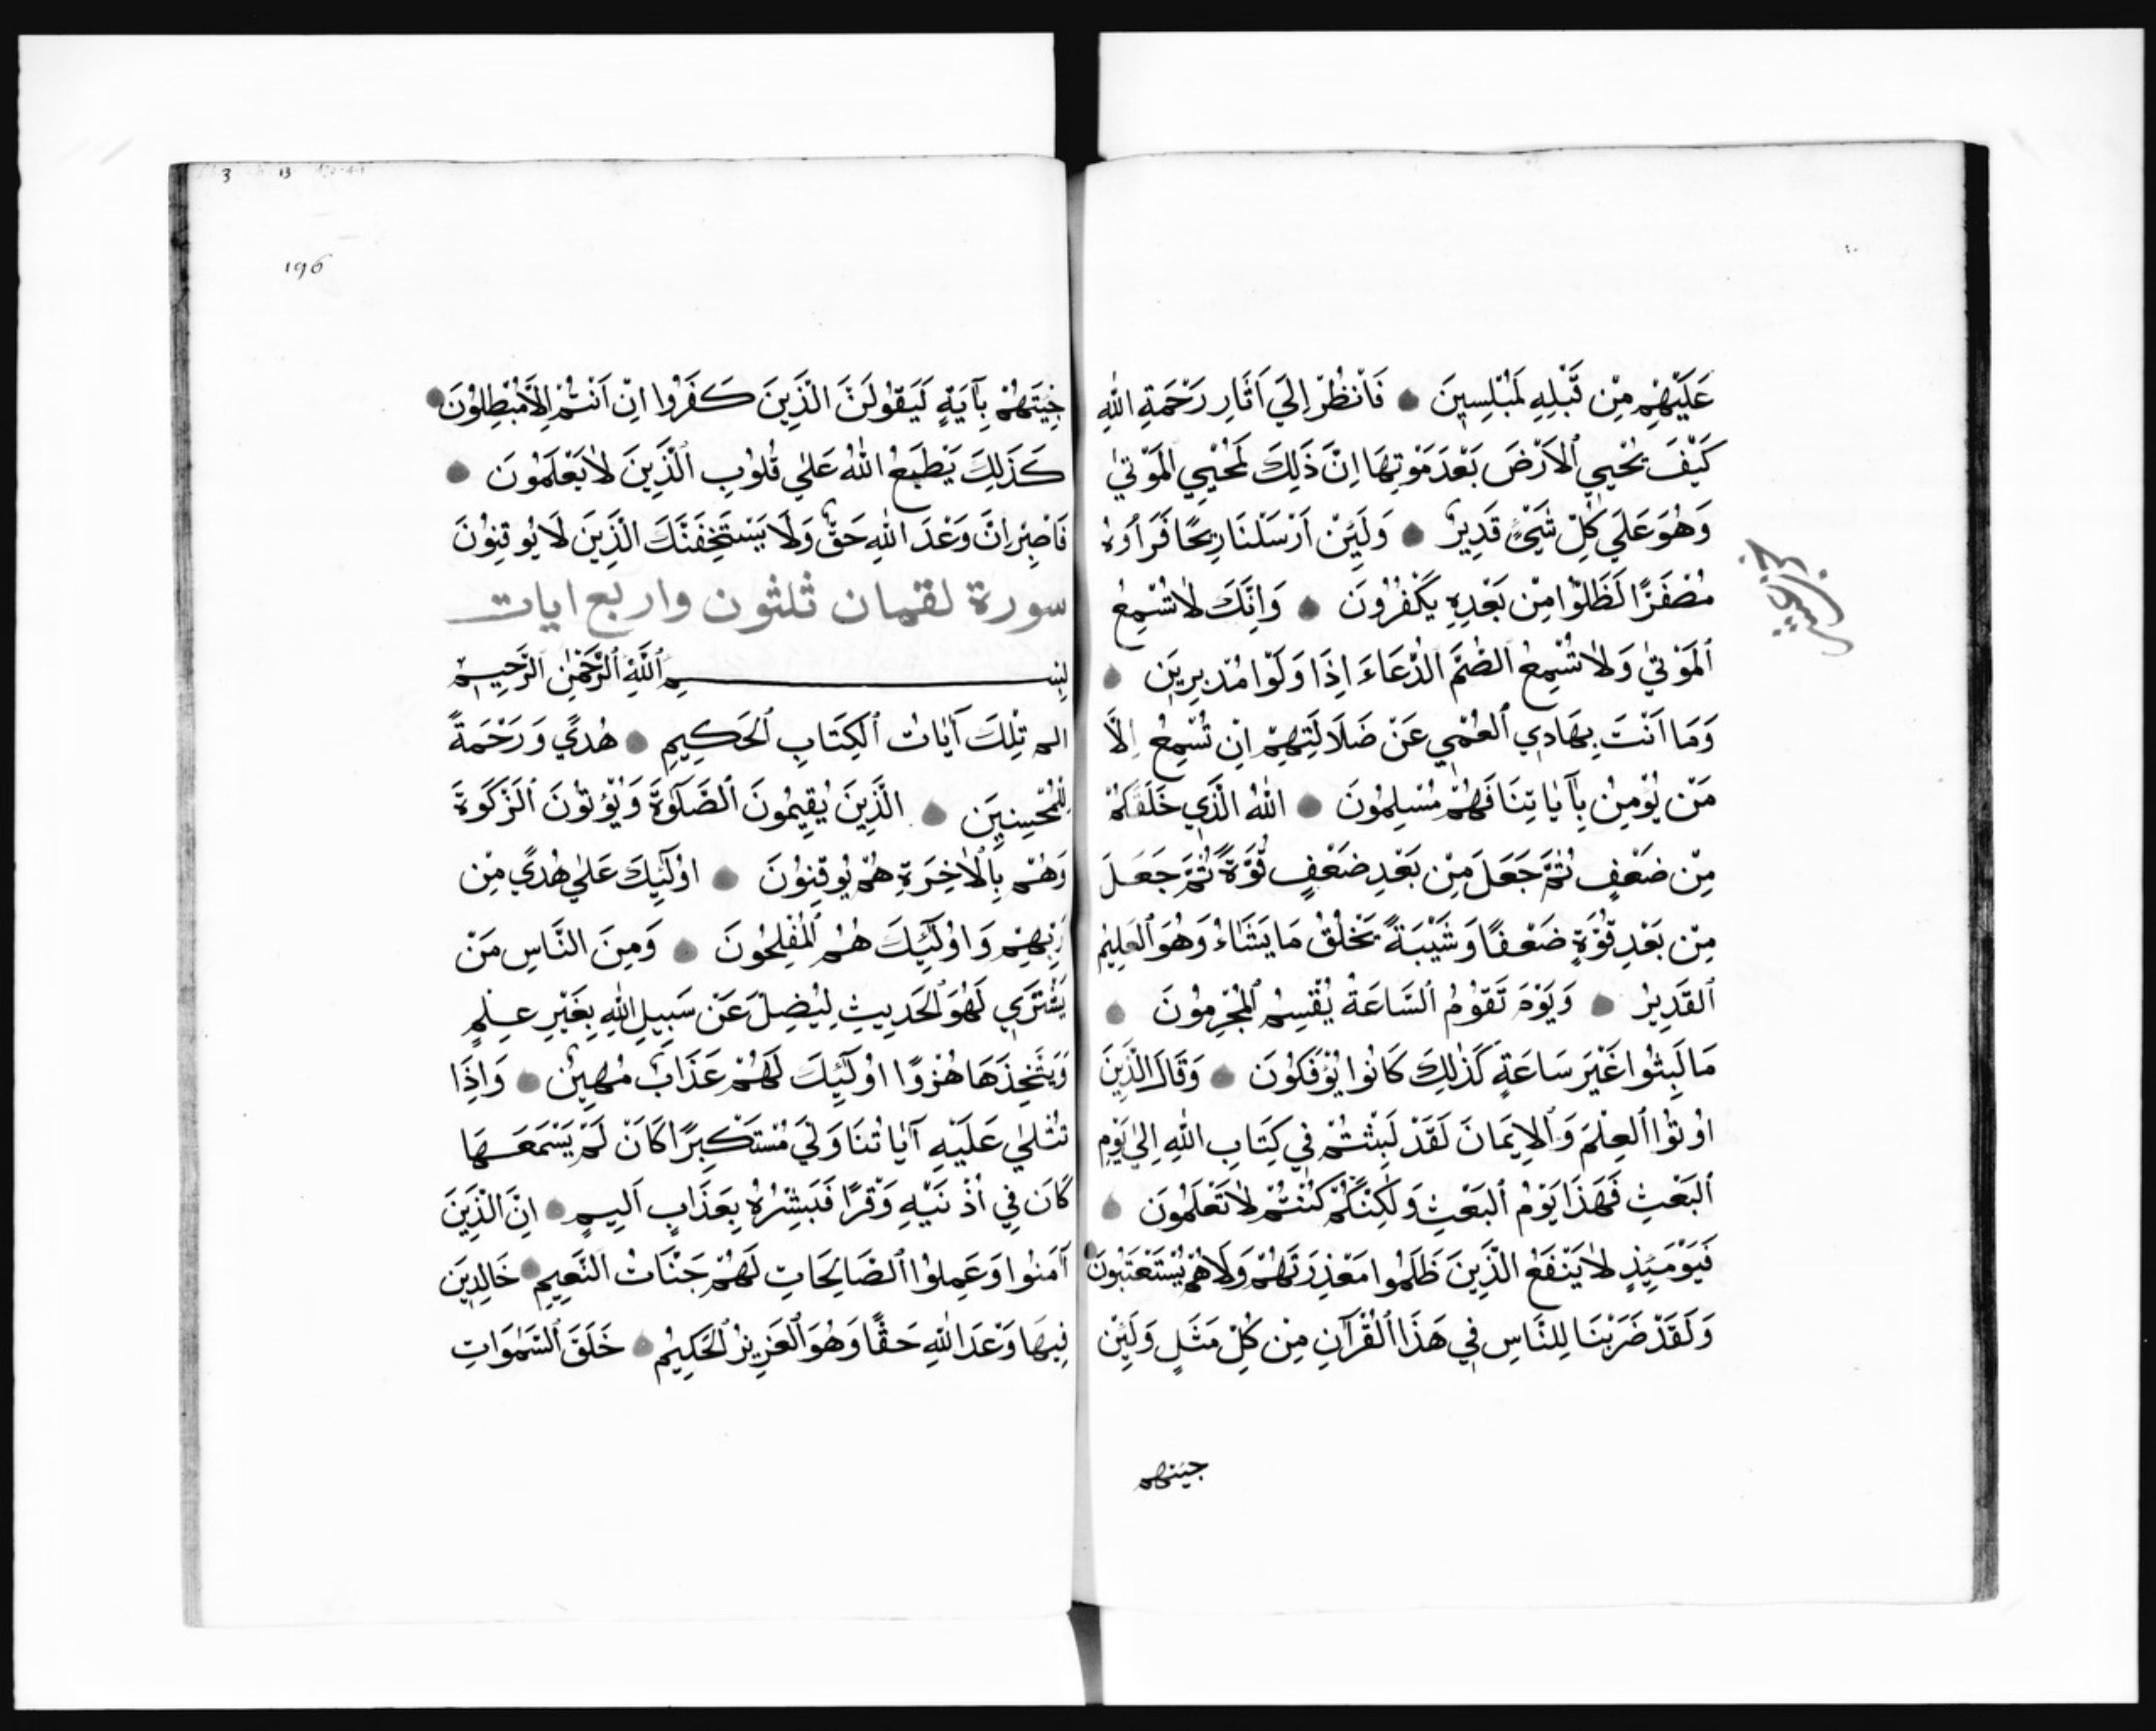 عَلَيْهِمْ مِنْ قَبْلِهِ لَمُبْلِسِينَ فَانْظُرْ اِلَي اَثَارِ رَحْمَةِ اللهِ
كَيْفَ يُحْيِي الْاَرْضَ بَعْدَ مَوْتِهَا اِنَّ ذَلِكَ لَمُحْيِي الْمَوْتٰي
وَهُوَ عَلَي كُلِّ شَيْءٍ قَدِيرٌ وَلَئِنْ اَرْسَلْنَا رِيحًا فَرَاَوْهُ
مُصْفَرًّا لَظَلُّوا مِنْ بَعْدِهِ يَكْفُرُونَ وَاِنَّكَ لَا تُسْمِعُ
الْمَوْتٰي وَلَا تُسْمِعُ الصُّمَّ الدُّعَاءَ اِذَا وَلَّوْا مُدْبِرِينَ
وَمَا اَنْتَ بِهَادِي الْعُمْيِ عَنْ ضَلَالَتِهِمْ اِنْ تُسْمِعُ اِلَّا
مَنْ يُؤْمِنُ بِآيَاتِنَا فَهُمْ مُسْلِمُونَ اللهُ الَّذِي خَلَقَكُمْ
مِنْ ضَعْفٍ ثُمَّ جَعَلَ مِنْ بَعْدِ ضَعْفٍ قُوَّةً ثُمَّ جَعَلَ
مِنْ بَعْدِ قُوَّةٍ ضَعْفًا وَشَيْبَةً يَخْلُقُ مَا يَشَاءُ وَهُوَ الْعَلِيمُ
الْقَدِيرُ وَيَوْمَ تَقُومُ السَّاعَةُ يُقْسِمُ الْمُجْرِمُونَ
مَا لَبِثُوا غَيْرَ سَاعَةٍ كَذٰلِكَ كَانُوا يُؤْفَكُونَ وَقَالَ الَّذِينَ
اُوتُوا الْعِلْمَ وَالْاِيمَانَ لَقَدْ لَبِثْتُمْ فِي كِتَابِ اللهِ اِلٰي يَوْمِ
الْبَعْثِ فَهَذَا يَوْمُ الْبَعْثِ وَلٰكِنَّكُمْ كُنْتُمْ لَا تَعْلَمُونَ
فَيَوْمَئِذٍ لَا يَنْفَعُ الَّذِينَ ظَلَمُوا مَعْذِرَتُهُمْ وَلَا هُمْ يُسْتَعْتَبُونَ
وَلَقَدْ ضَرَبْنَا لِلنَّاسِ فِي هَذَا الْقُرْآنِ مِنْ كُلِّ مَثَلٍ وَلَئِنْ
جيتهم
196
جِيتَهُمْ بِآيَةٍ لَيَقُولَنَّ الَّذِينَ كَفَرُوا اِنْ اَنْتُمْ اِلَّا مُبْطِلُونَ
كَذَلِكَ يَطْبَعُ اللهُ عَلٰي قُلُوبِ الَّذِينَ لَا يَعْلَمُونَ
فَاصْبِرْ اِنَّ وَعْدَ اللهِ حَقٌّ وَلَا يَسْتَخِفَّنَّكَ الَّذِينَ لَا يُوقِنُونَ
سورة لقمان ثلثون واربع ايات
بِسْمِ اللَّهِ الرَّحْمٰنِ الرَّحِيمِ
الم تِلْكَ آيَاتُ الْكِتَابِ الْحَكِيمِ هُدًي وَرَحْمَةً
لِلْمُحْسِنِينَ الَّذِينَ يُقِيمُونَ الصَّلَوٰةَ وَيُؤْتُونَ الزَّكَوةَ
وَهُمْ بِالْاٰخِرَةِ هُمْ يُوقِنُونَ اُولٰئِكَ عَلٰي هُدًي مِنْ
رَبِّهِمْ وَاُولٰئِكَ هُمُ الْمُفْلِحُونَ وَمِنَ النَّاسِ مَنْ
يَشْتَرِي لَهْوَ الْحَدِيثِ لِيُضِلَّ عَنْ سَبِيلِ اللهِ بِغَيْرِ عِلْمٍ
وَيَتَّخِذَهَا هُزُوًا اُولٰئِكَ لَهُمْ عَذَابٌ مُهِينٌ وَاِذَا
تُتْلٰي عَلَيْهِ آيَاتُنَا وَلّٰي مُسْتَكْبِرًا كَاَنْ لَمْ يَسْمَعْهَا
كَاَنَّ فِي اُذْنَيْهِ وَقْرًا فَبَشِّرْهُ بِعَذَابٍ اَلِيمٍ اِنَّ الَّذِينَ
آمَنُوا وَعَمِلُوا الصَّالِحَاتِ لَهُمْ جَنَّاتُ النَّعِيمِ خَالِدِينَ
فِيهَا وَعْدَ اللهِ حَقًّا وَهُوَ الْعَزِيزُ الْحَكِيمُ خَلَقَ السَّمٰوَاتِ